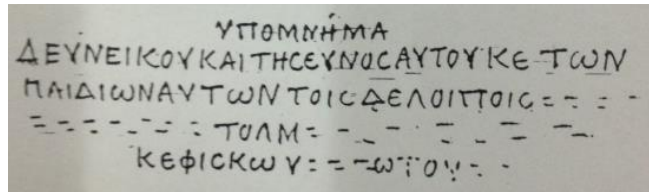 ΥΠΟΜΝΗΜΑ
ΔΕΥΝΕΙΚΟΥΚΑΙΤΗCΕΥΝΟCΑΥΤΟΥΚΕ ΤΩΝ
ΠΑΙΔΙΩΝΑΥΤΩΝΤΟΙCΔΕΛΟΙΠΟΙC= - - -
- - - - - - - ΤΟΛΜ= - - - - - -
ΚΕΦΙCΚΩΥ: - -ΩΤΟΥ: -